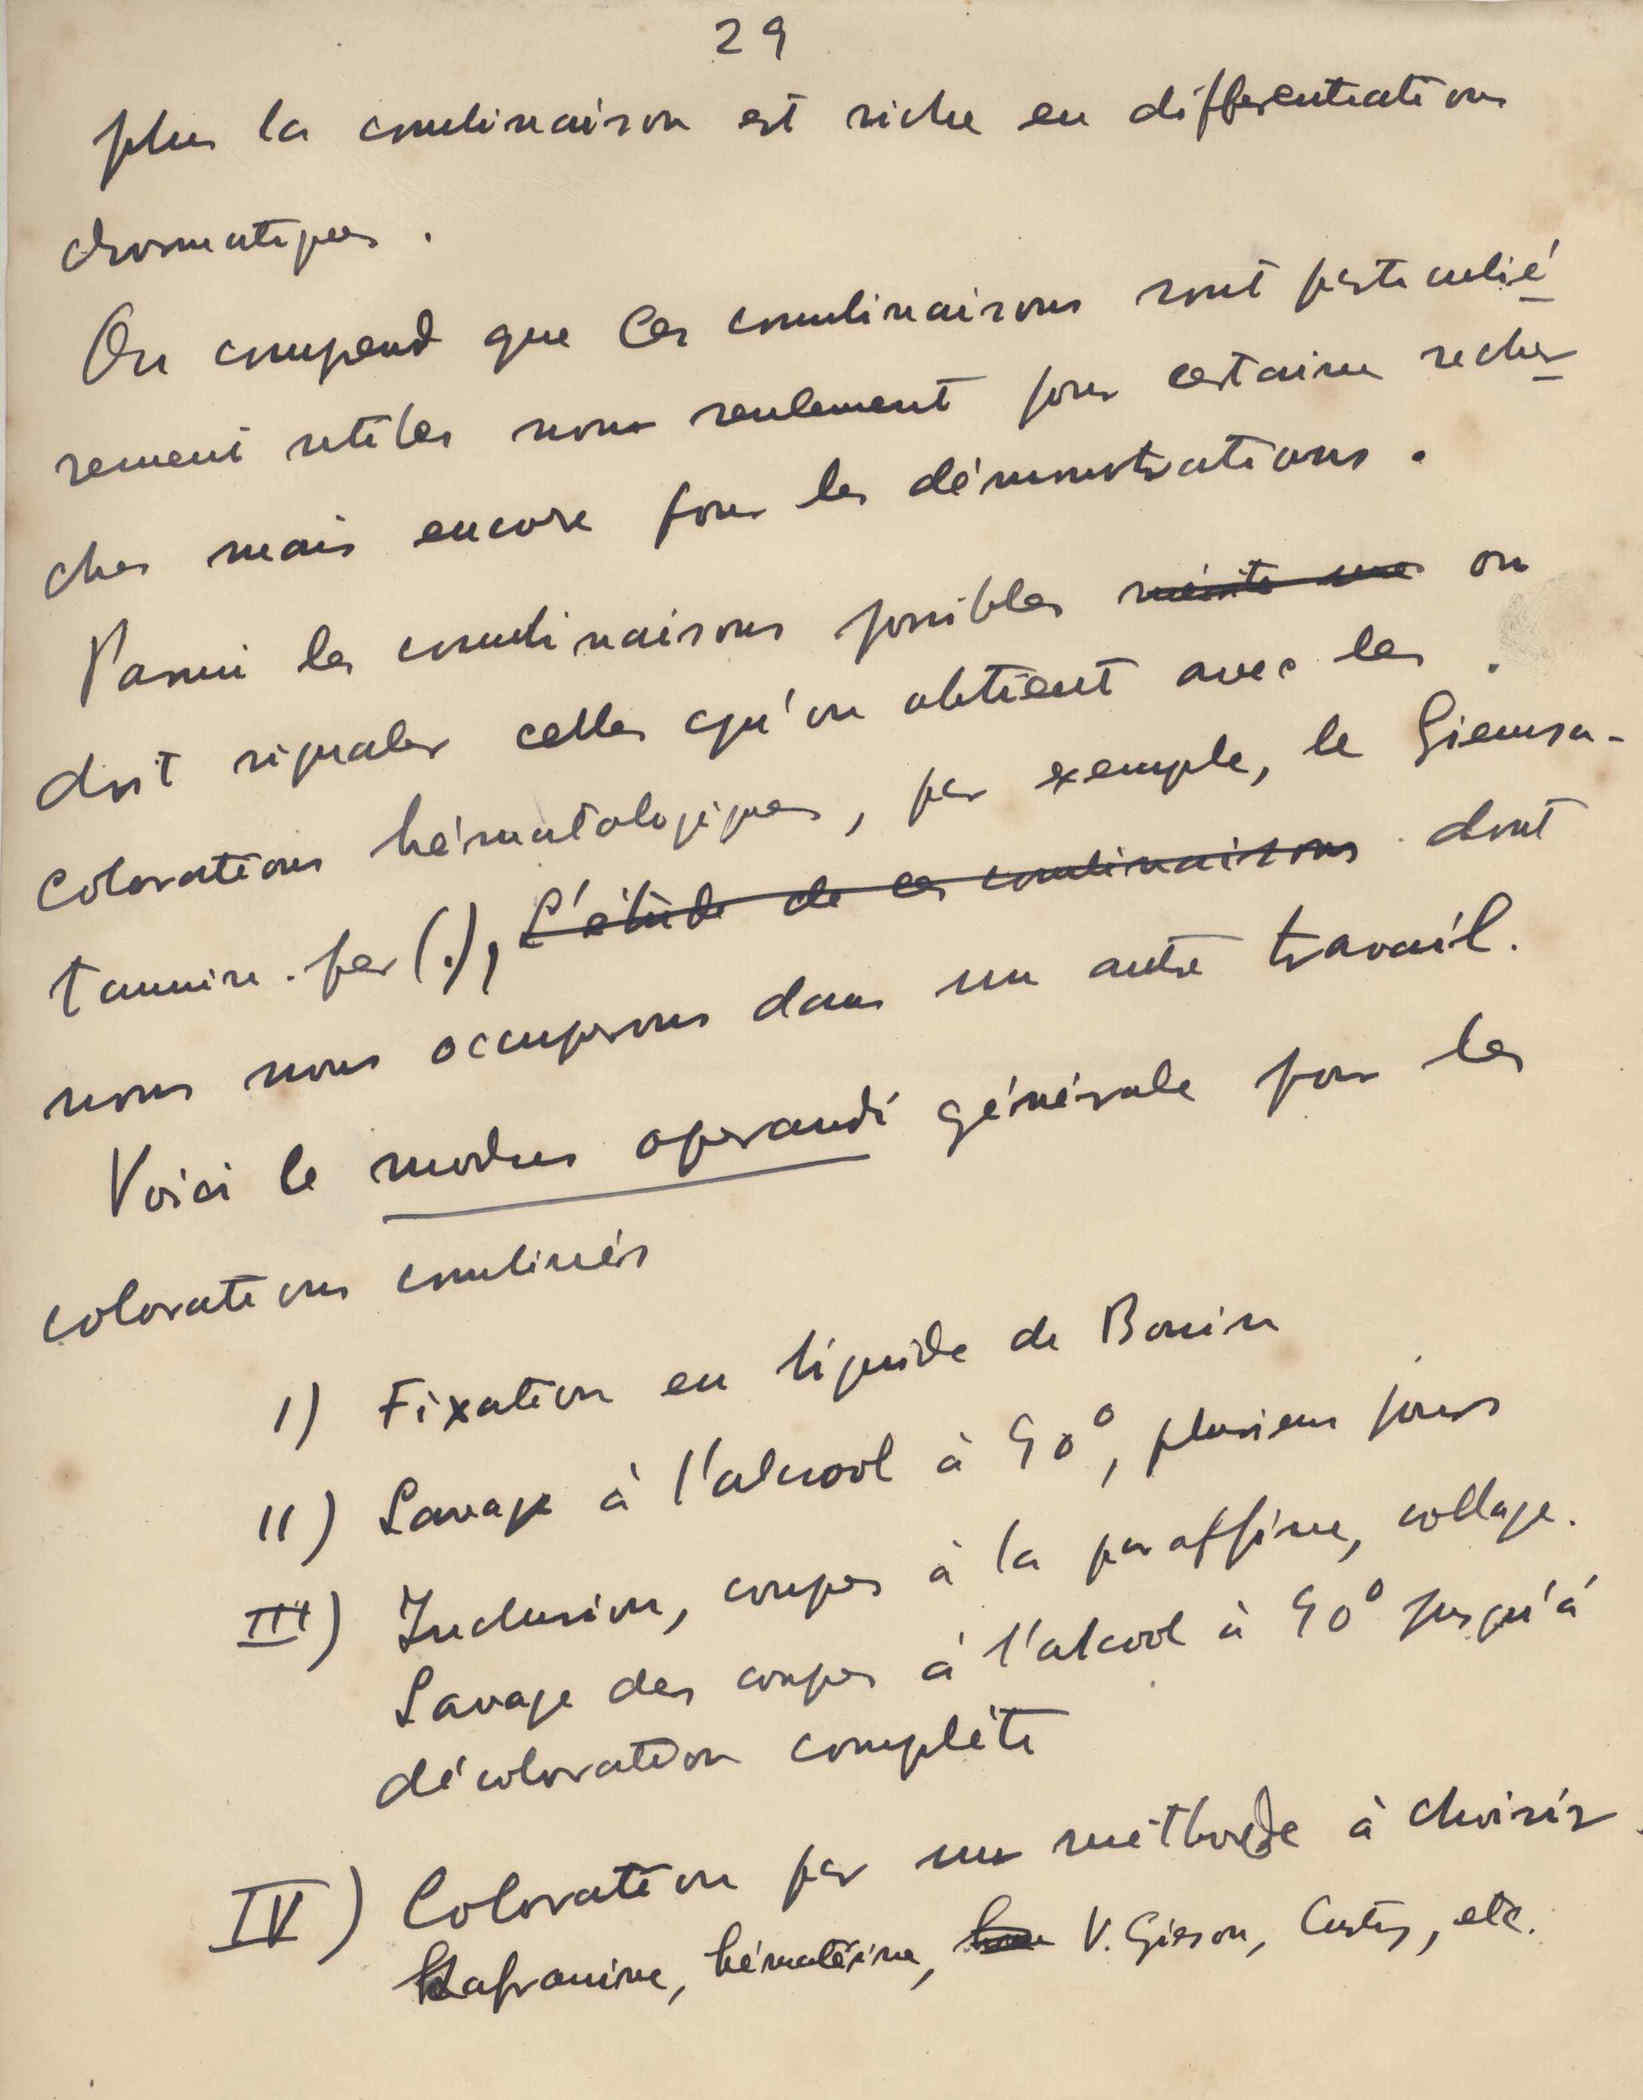 29
plus la combinaison est riche en différentiations
chromatiques.
On comprend que les combinaisons sont particulié
rement utiles non seulement pour certaines recher
ches mais encore pour les démonstrations.
Parmi les combinaisons possibles mérite une on
doit signaler celles qu'on obtient avec les
colorations hématologiques, par exemple, le Giemsa-
tannin-fer (.), L'étude de ces combinaisons dont
nous nous occuperons dans un autre travail.
Voici le modus operandi générale pour les
colorations combinés
I) Fixation en liquide de Bouin
II) Lavage à l'alcool à 90°, plusieurs jours
III) Inclusion, coupes à la paraffine, collage.
Lavage des coupes à l'alcool à 90° jusqu'à
décoloration complète
IV) Coloration par un méthode à choisir.
safranine, hématéine, V. Gieson, etc.